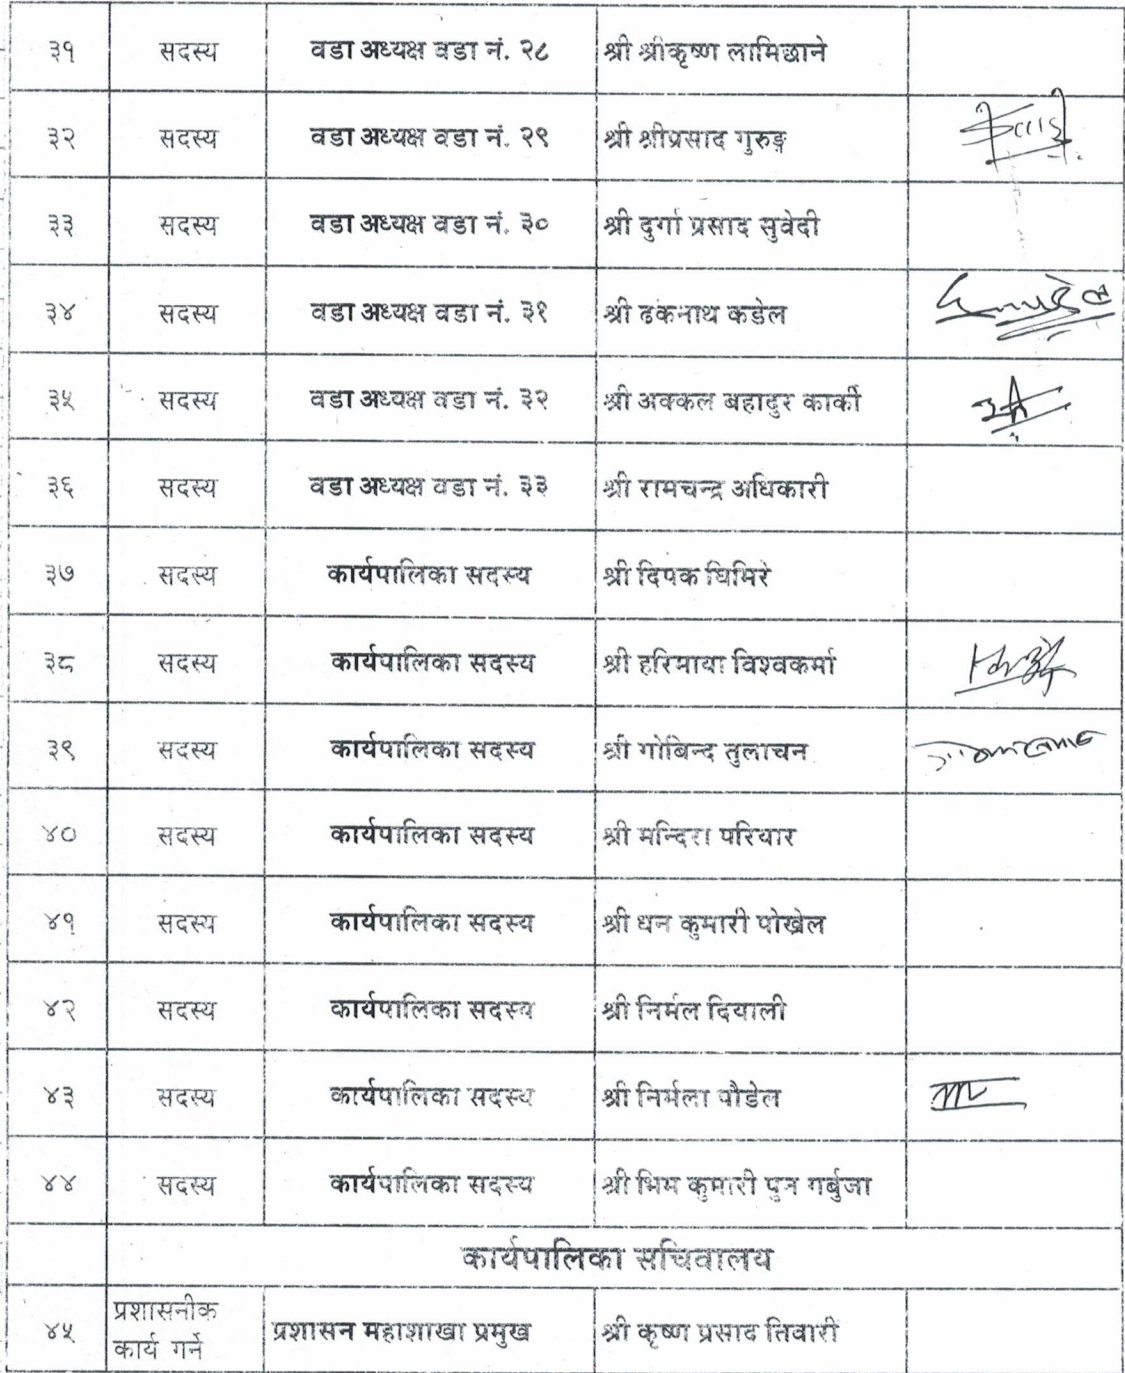 ३१ सदस्य वडा अध्यक्ष वडा नं. २८ श्री श्रीकृष्ण लामिछाने
३२ सदस्य वडा अध्यक्ष वडा नं. २९ श्री श्रीप्रसाद गुरुङ्ग
३३ सदस्य वडा अध्यक्ष वडा नं. ३० श्री दुर्गा प्रसाद सुवेदी
३४ सदस्य वडा अध्यक्ष वडा नं. ३१ श्री ढकनाथ कडेल
३५ सदस्य वडा अध्यक्ष वडा नं. ३२ श्री अक्कल बहादुर कार्की
३६ सदस्य वडा अध्यक्ष वडा नं. ३३ श्री रामचन्द्र अधिकारी
३७ सदस्य कार्यपालिका सदस्य श्री दिपक घिमिरे
३८ सदस्य कार्यपालिका सदस्य श्री हरिमाया विश्वकर्मा
३९ सदस्य कार्यपालिका सदस्य श्री गोबिन्द तुलाचन
४० सदस्य कार्यपालिका सदस्य श्री मन्दिरा परियार
४१ सदस्य कार्यपालिका सदस्य श्री धन कुमारी पोखेल
४२ सदस्य कार्यपालिका सदस्य श्री निर्मल दियाली
४३ सदस्य कार्यपालिका सदस्य श्री निर्मला पौडेल
४४ सदस्य कार्यपालिका सदस्य श्री भिम कुमारी पुन गर्बुजा
कार्यपालिका सचिवालय
४५ प्रशासनीक
कार्य गर्ने प्रशासन महाशाखा प्रमुख श्री कृष्ण प्रसाद तिवारी